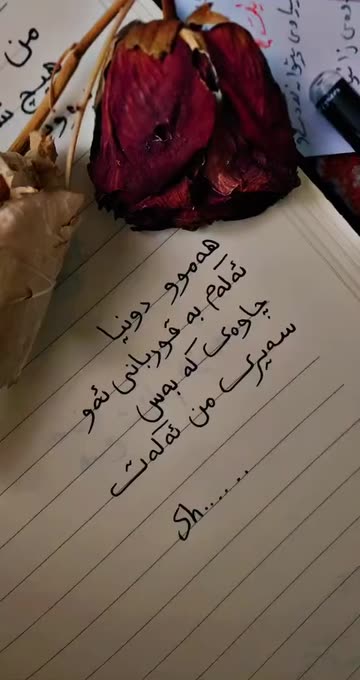 من
هیچ
هەموو دونیا
ئەڵەم بە قوربانی ئەو
چاوەی کە بەس
سەیری من ئەکەت
Sh......